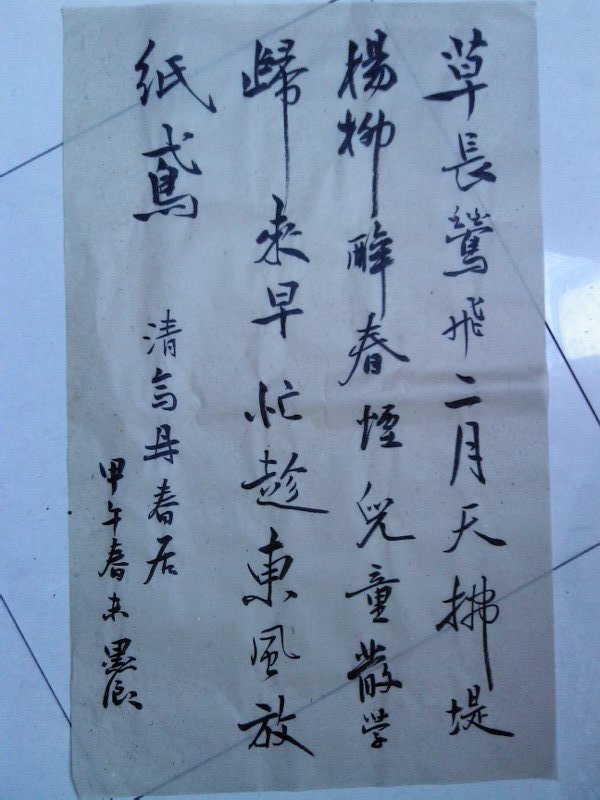 草長鶯飛二月天拂堤
楊柳醉春煙兒童散学
歸來早忙趁東風放
紙鳶
清高鼎春居
甲午春末墨農